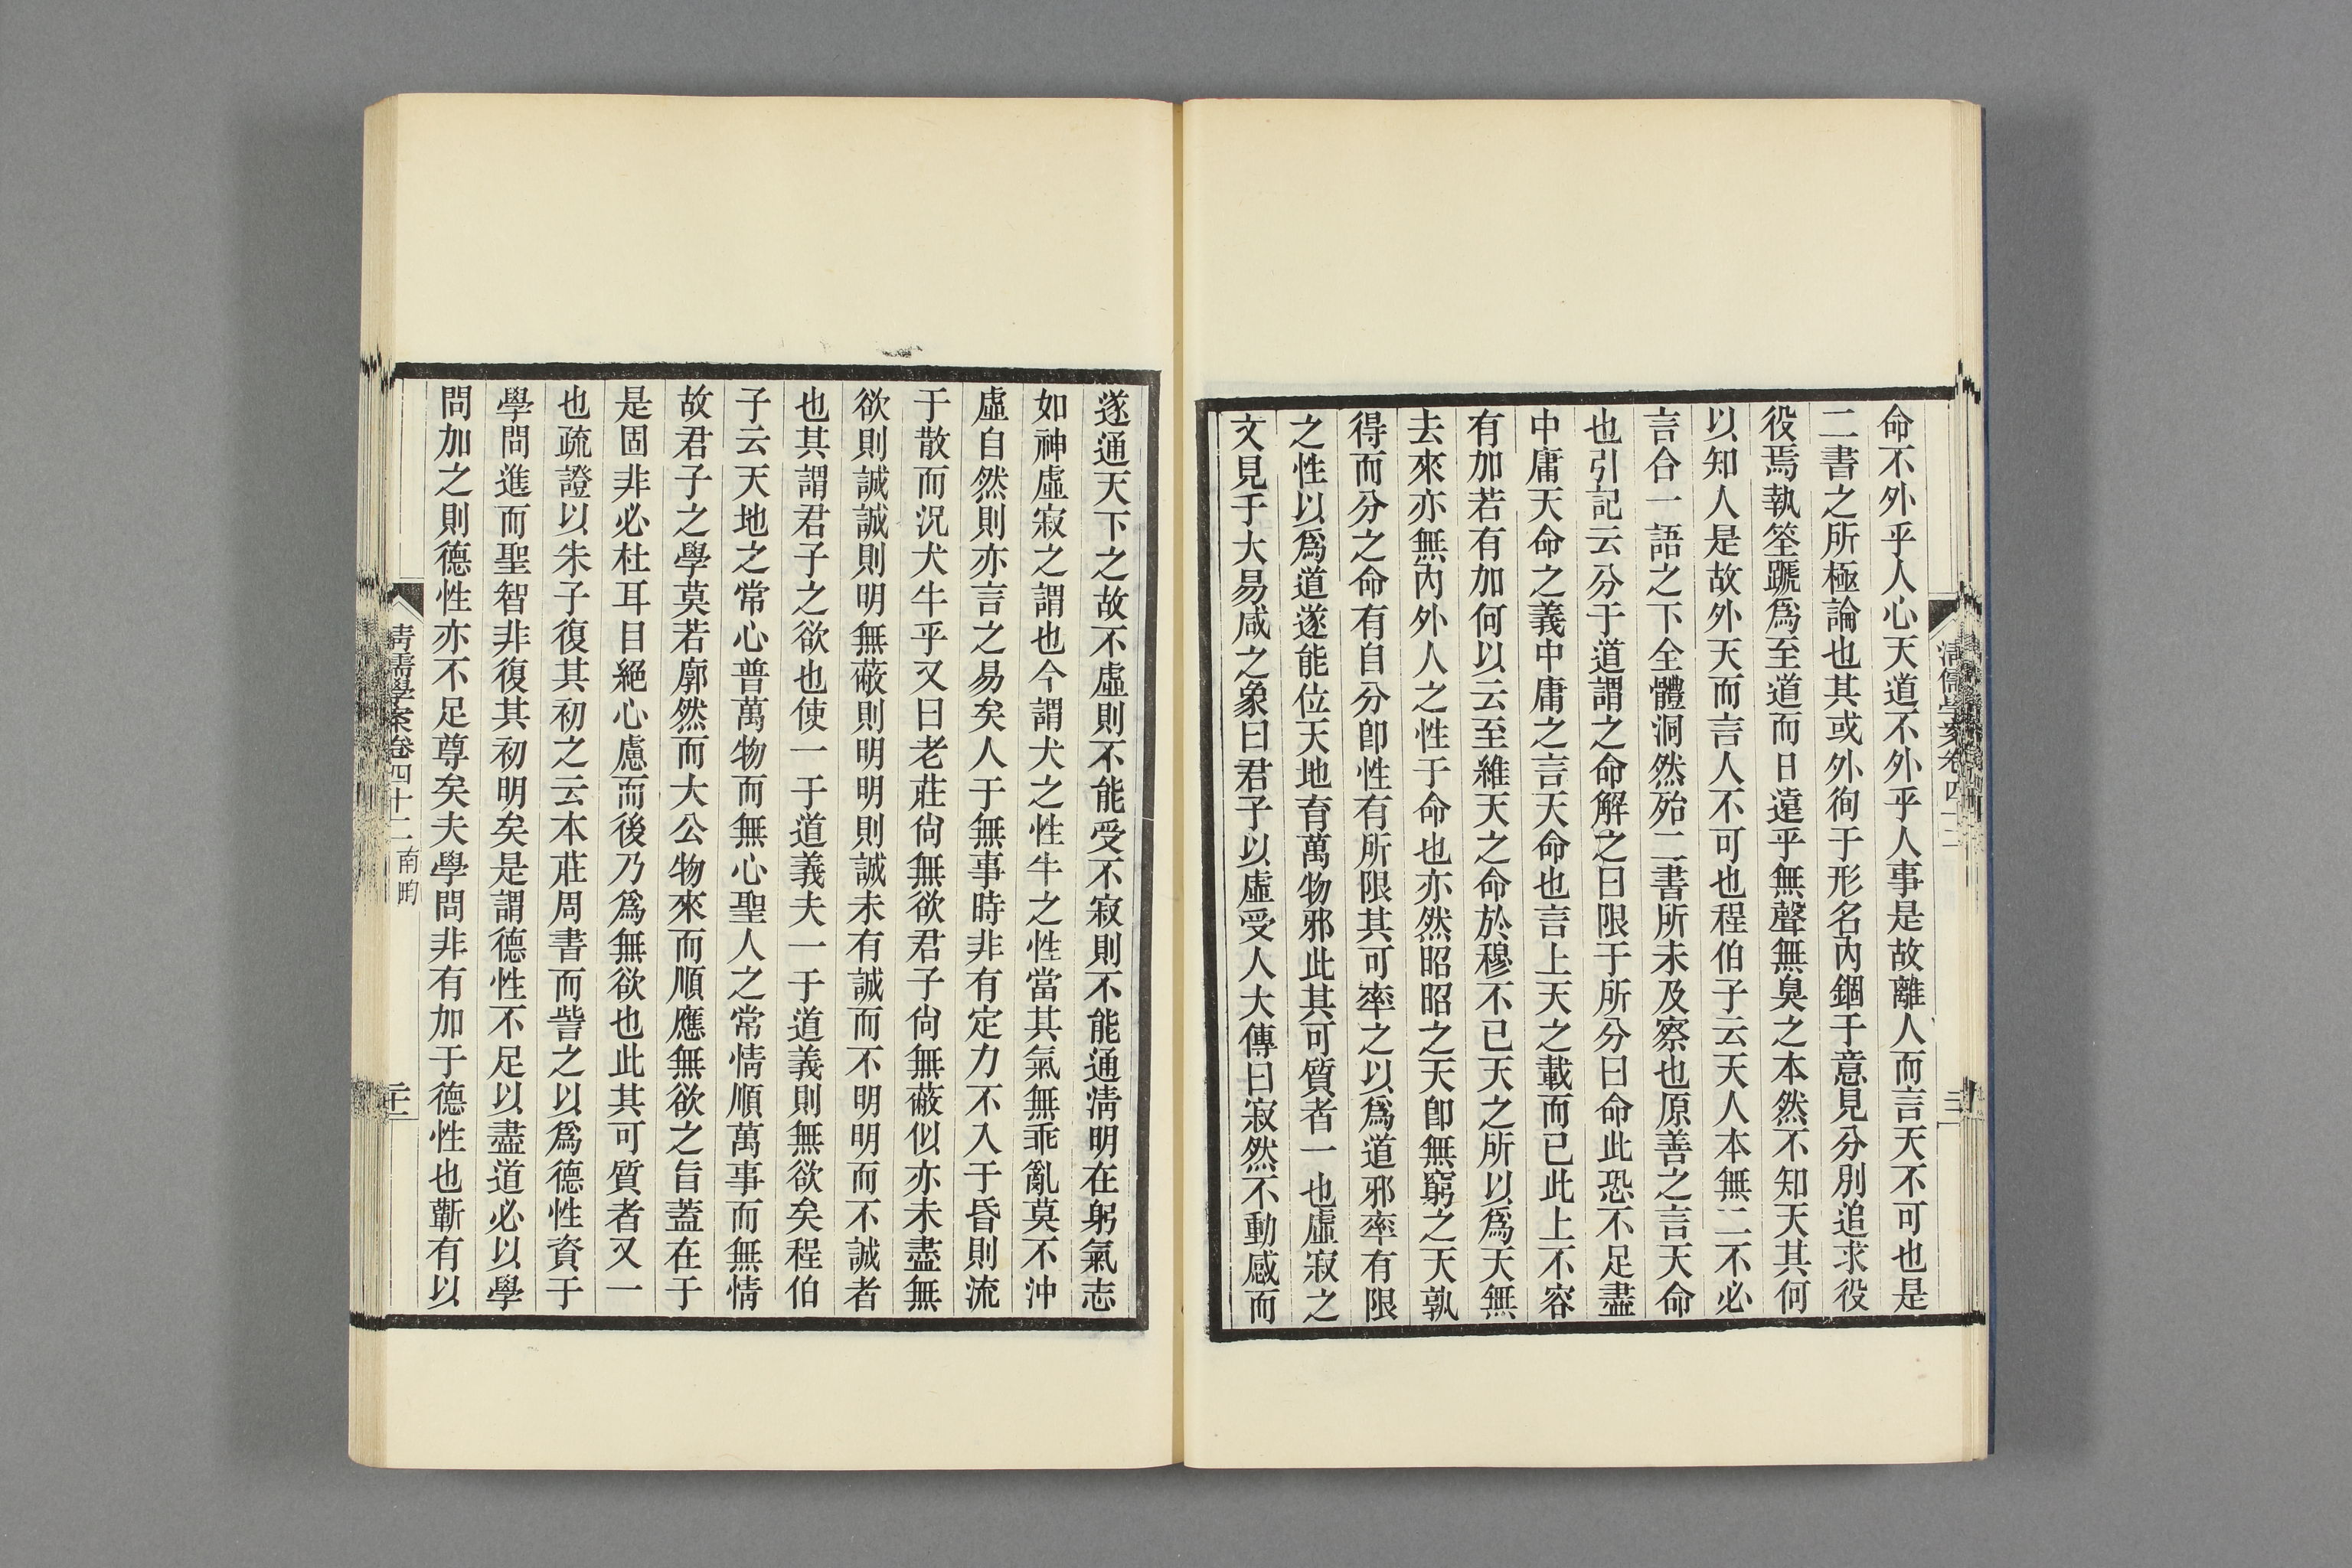 命不外乎人心天道不外乎人事是故離人而言天不可也是
二書之所極論也其或外徇于形名內錮于意見分別追求役
役焉執筌蹏爲至道而日遠乎無聲無臭之本然不知天其何
以知人是故外天而言人不可也程伯子云天人本無二不必
言合一語之下全體洞然殆二書所未及察也原善之言天命
也引記云分于道謂之命解之曰限于所分曰命此恐不足盡
中庸天命之義中庸之言天命也言上天之載而已此上不容
有加若有加何以云至維天之命於穆不已天之所以爲天無
去來亦無內外人之性于命也亦然昭昭之天卽無窮之天孰
得而分之命有自分卽性有所限其可率之以爲道邪率有限
之性以爲道遂能位天地育萬物邪此其可質者一也虛寂之
文見于大易咸之象曰君子以虛受人大傳曰寂然不動感而
遂通天下之故不虛則不能受不寂則不能通淸明在躬氣志
如神虛寂之謂也今謂犬之性牛之性當其氣無乖亂莫不沖
虛自然則亦言之易矣人于無事時非有定力不入于昏則流
于散而況犬牛乎又曰老莊尙無欲君子尙無蔽似亦未盡無
欲則誠誠則明無蔽則明明則誠未有誠而不明明而不誠者
也其謂君子之欲也使一于道義夫一于道義則無欲矣程伯
子云天地之常心普萬物而無心聖人之常情順萬事而無情
故君子之學莫若廓然而大公物來而順應無欲之旨蓋在于
是固非必杜耳目絕心慮而後乃爲無欲也此其可質者又一
也疏證以朱子復其初之云本莊周書而訾之以爲德性資于
學問進而聖智非復其初明矣是謂德性不足以盡道必以學
問加之則德性亦不足尊矣夫學問非有加于德性也蘄有以
清儒學案卷四十二 南畇